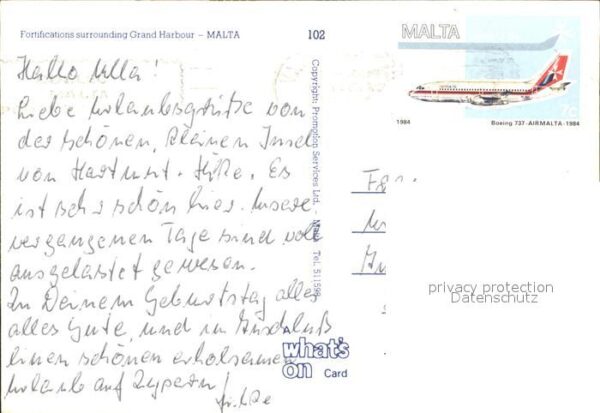 Fortifications surrounding Grand Harbour – MALTA
102
MALTA
7c
1984
Boeing 737-AIRMALTA-1984
Hallo Ulla!
Liebe Urlaubsgrüße von
der schönen, kleinen Insel
von Hartmut. Hilke. Es
ist sehr schön hier. Unsere
vergangenen Tage sind voll
ausgelastet gewesen.
Zu Deinem Geburtstag alles
alles Gute, und im Anschluß
einen schönen erholsamen
Urlaub auf Zypern!
Copyright: Promotion Services Ltd. – Malta Tel. 511598
A
what's
on Card
privacy protection
Datenschutz